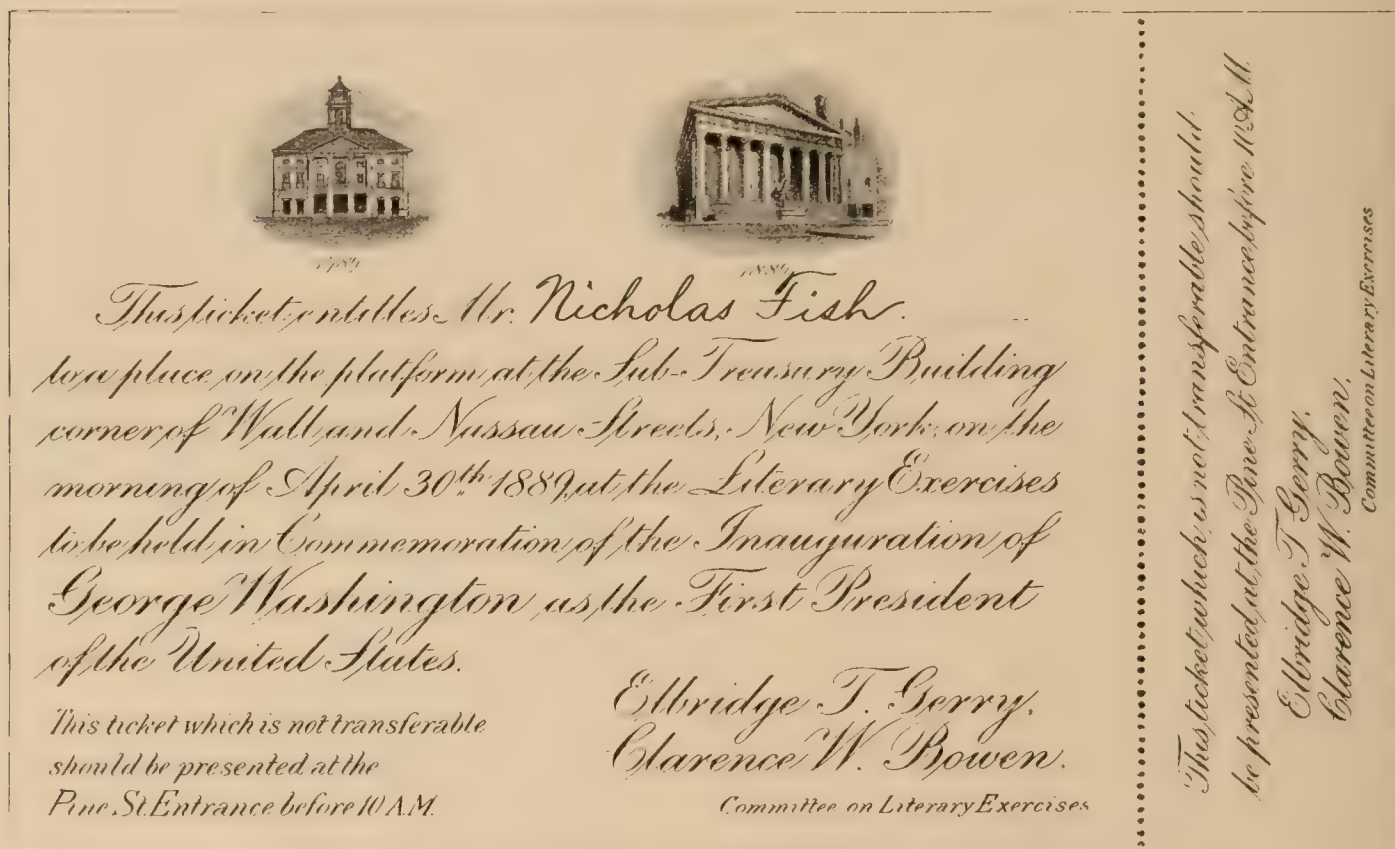 1789
1889
This ticket entitles Mr. Nicholas Fish.
to a place on the platform at the Sub-Treasury Building
corner of Wall and Nassau Streets, New York, on the
morning of April 30th 1889, at the Literary Exercises
to be held in Commemoration of the Inauguration of
George Washington as the First President
of the United States.
This ticket which is not transferable
should be presented at the
Pine St. Entrance before 10 A.M.
Elbridge T. Gerry.
Clarence W. Bowen.
Committee on Literary Exercises
This ticket which is not transferable should
be presented at the Pine St. Entrance before 10 A.M.
Elbridge T. Gerry.
Clarence W. Bowen.
Committee on Literary Exercises